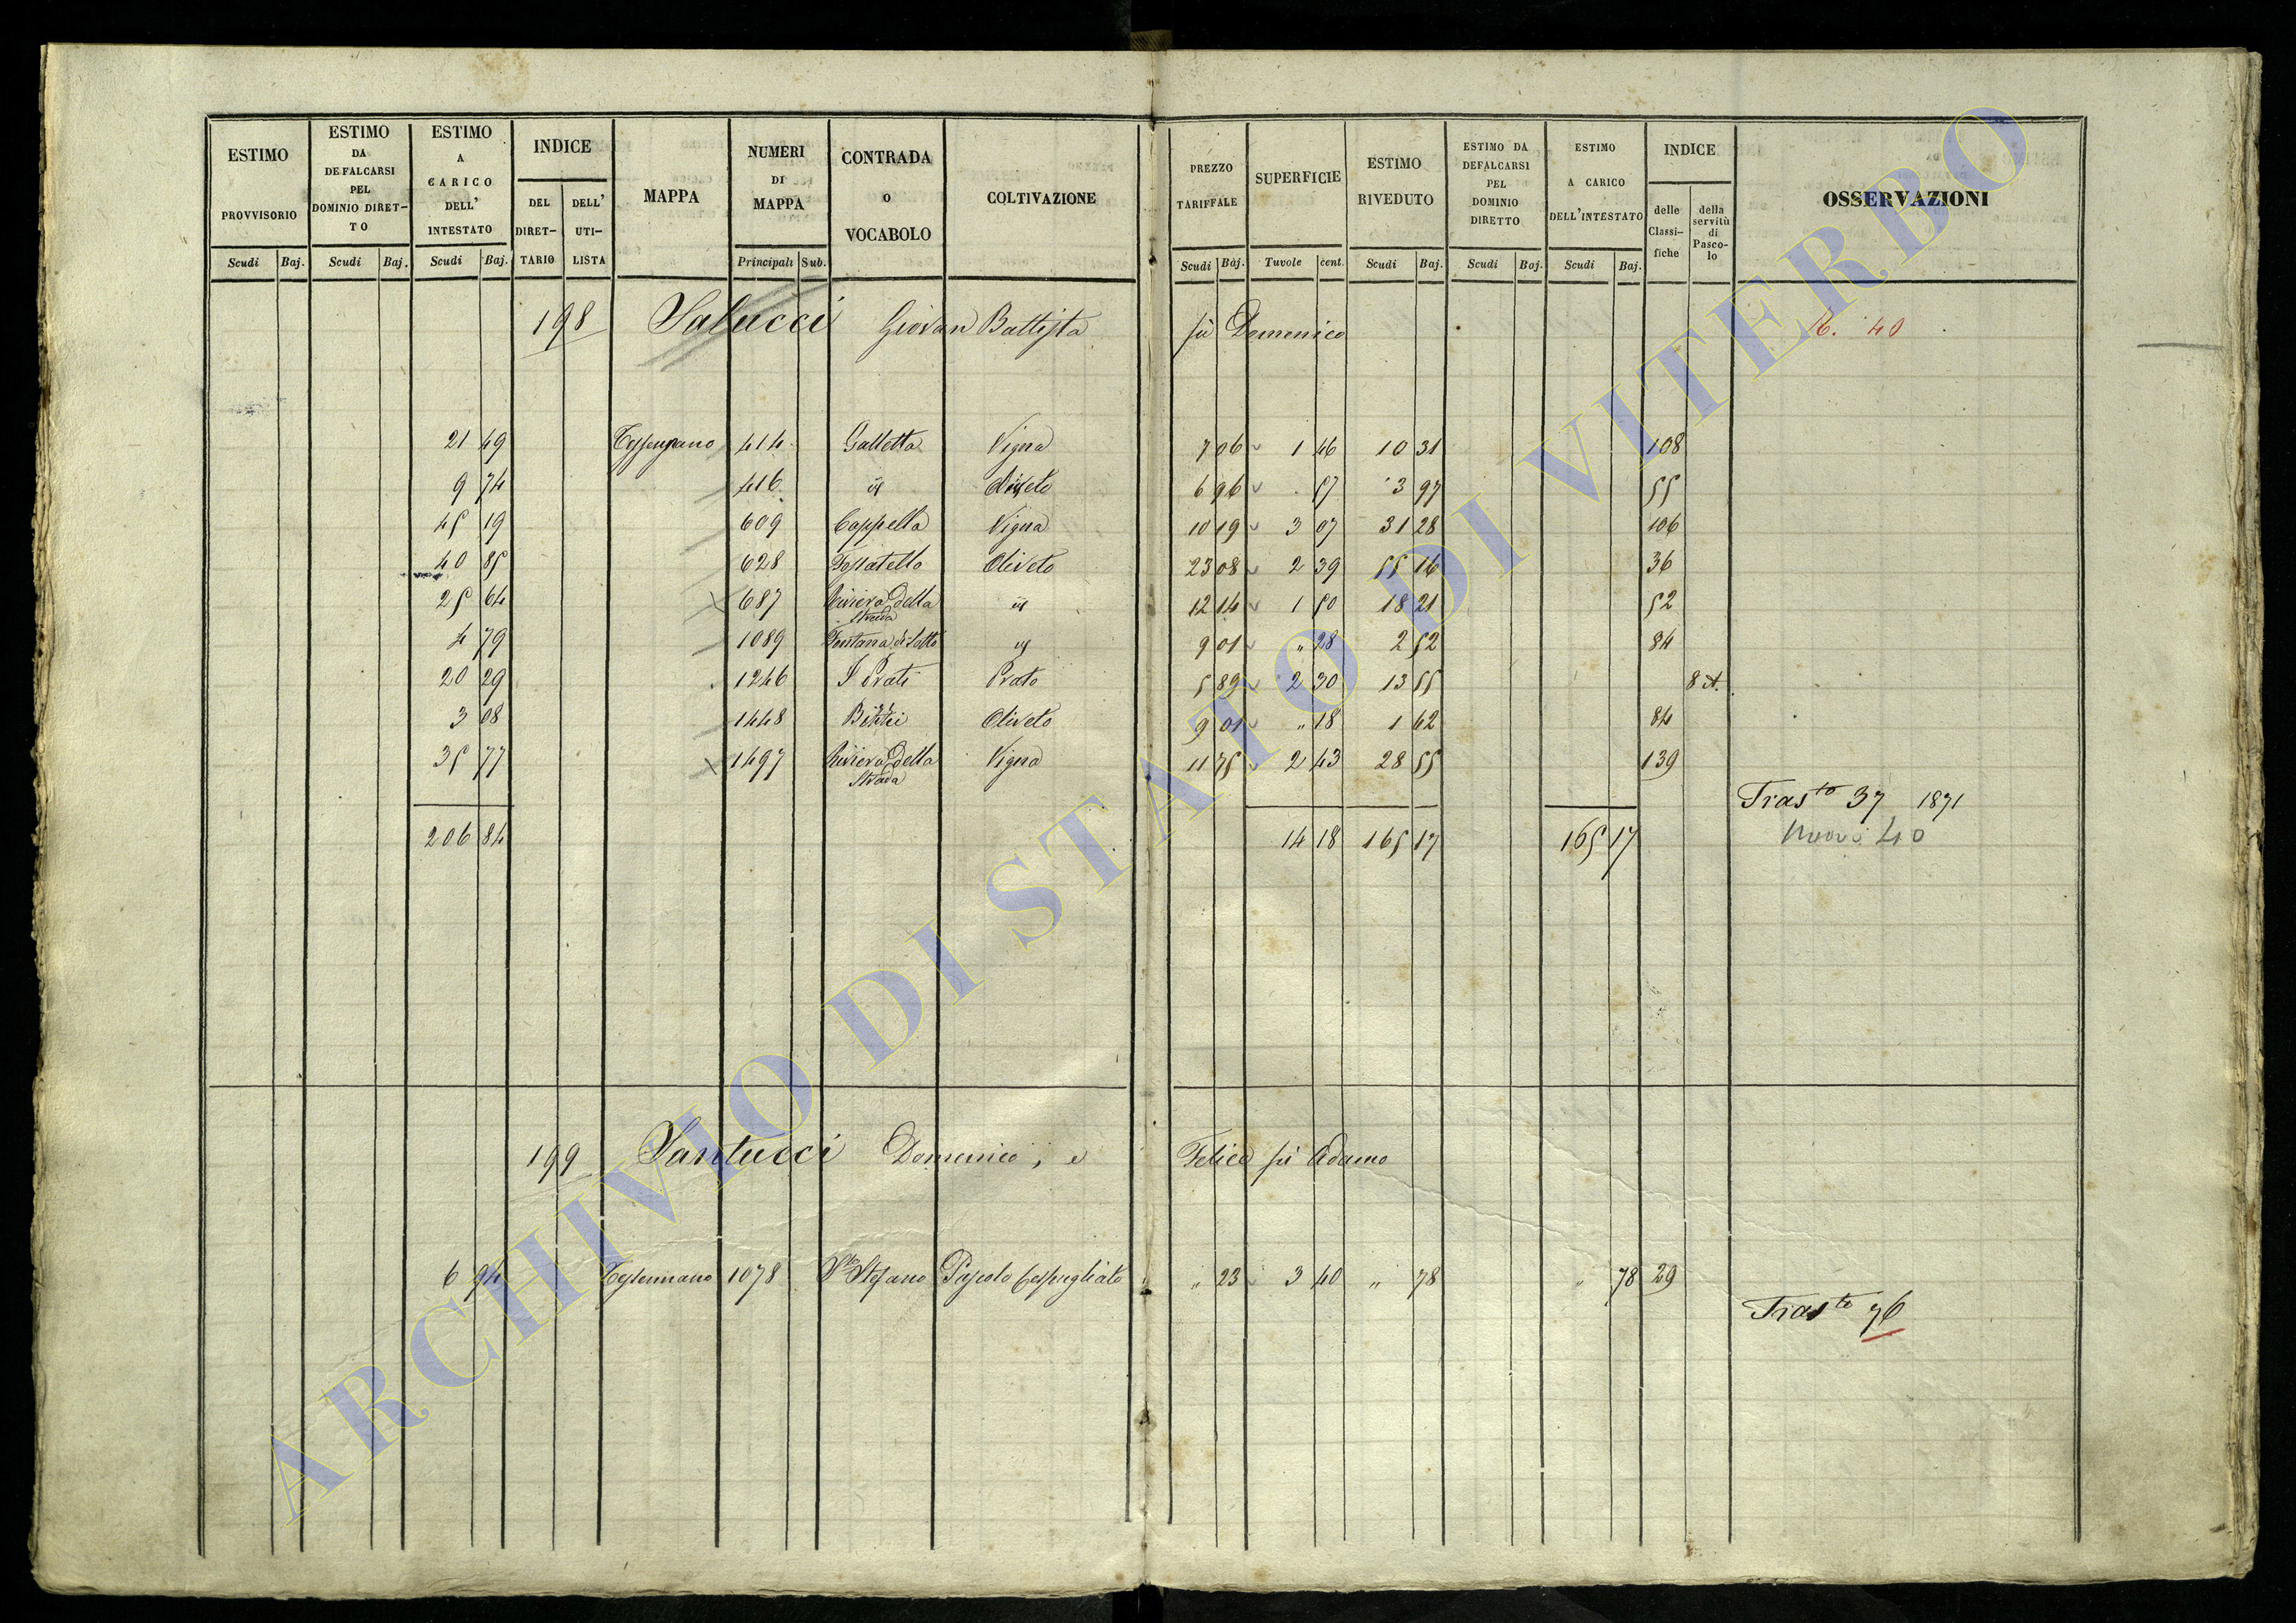 ESTIMO PROVVISORIO Scudi Baj.
ESTIMO DA DEFALCARSI PEL DOMINIO DIRET-TO Scudi Baj.
ESTIMO A CARICO DELL' INTESTATO Scudi Baj.
INDICE DEL DIRET-TARIO DELL' UTI-LISTA
MAPPA
NUMERI DI MAPPA Principali Sub.
CONTRADA O VOCABOLO
COLTIVAZIONE
PREZZO TARIFFALE Scudi Baj.
SUPERFICIE Tavole cent.
ESTIMO RIVEDUTO Scudi Baj.
ESTIMO DA DEFALCARSI PEL DOMINIO DIRETTO Scudi Baj.
ESTIMO A CARICO DELL'INTESTATO Scudi Baj.
INDICE delle Classi-fiche della servitù di Pasco-lo
OSSERVAZIONI
198 Salucci Giovan Battista fù Domenico 40
21 49 Tessennano 414 Galletta Vigna 7 06 1 46 10 31 108
9 74 416 id Oliveto 6 96 . 57 3 97 55
45 19 609 Cappella Vigna 10 19 3 07 31 28 106
40 85 628 Fossatello Oliveto 23 08 2 39 55 16 36
25 64 687 Riviera Della Strada id 12 14 1 50 18 21 52
4 79 1089 Fontana di Sotto id 9 01 " 28 2 52 84
20 29 1246 I Prati Prato 5 89 2 30 13 55 8 A.
3 08 1448 Oliveto 9 01 " 18 1 62 84
35 77 1497 Riviera Della Strada Vigna 11 75 2 43 28 55 139
Trasto 37 1871
206 84 14 18 165 17 165 17 nuovo 40
199 Santucci Domenico, e Felice fù Adamo
6 94 Tessennano 1078 Sto Stefano Pascolo Cespugliato " 23 3 40 " 78 " 78 29
Trasto 76
ARCHIVIO DI STATO DI VITERBO